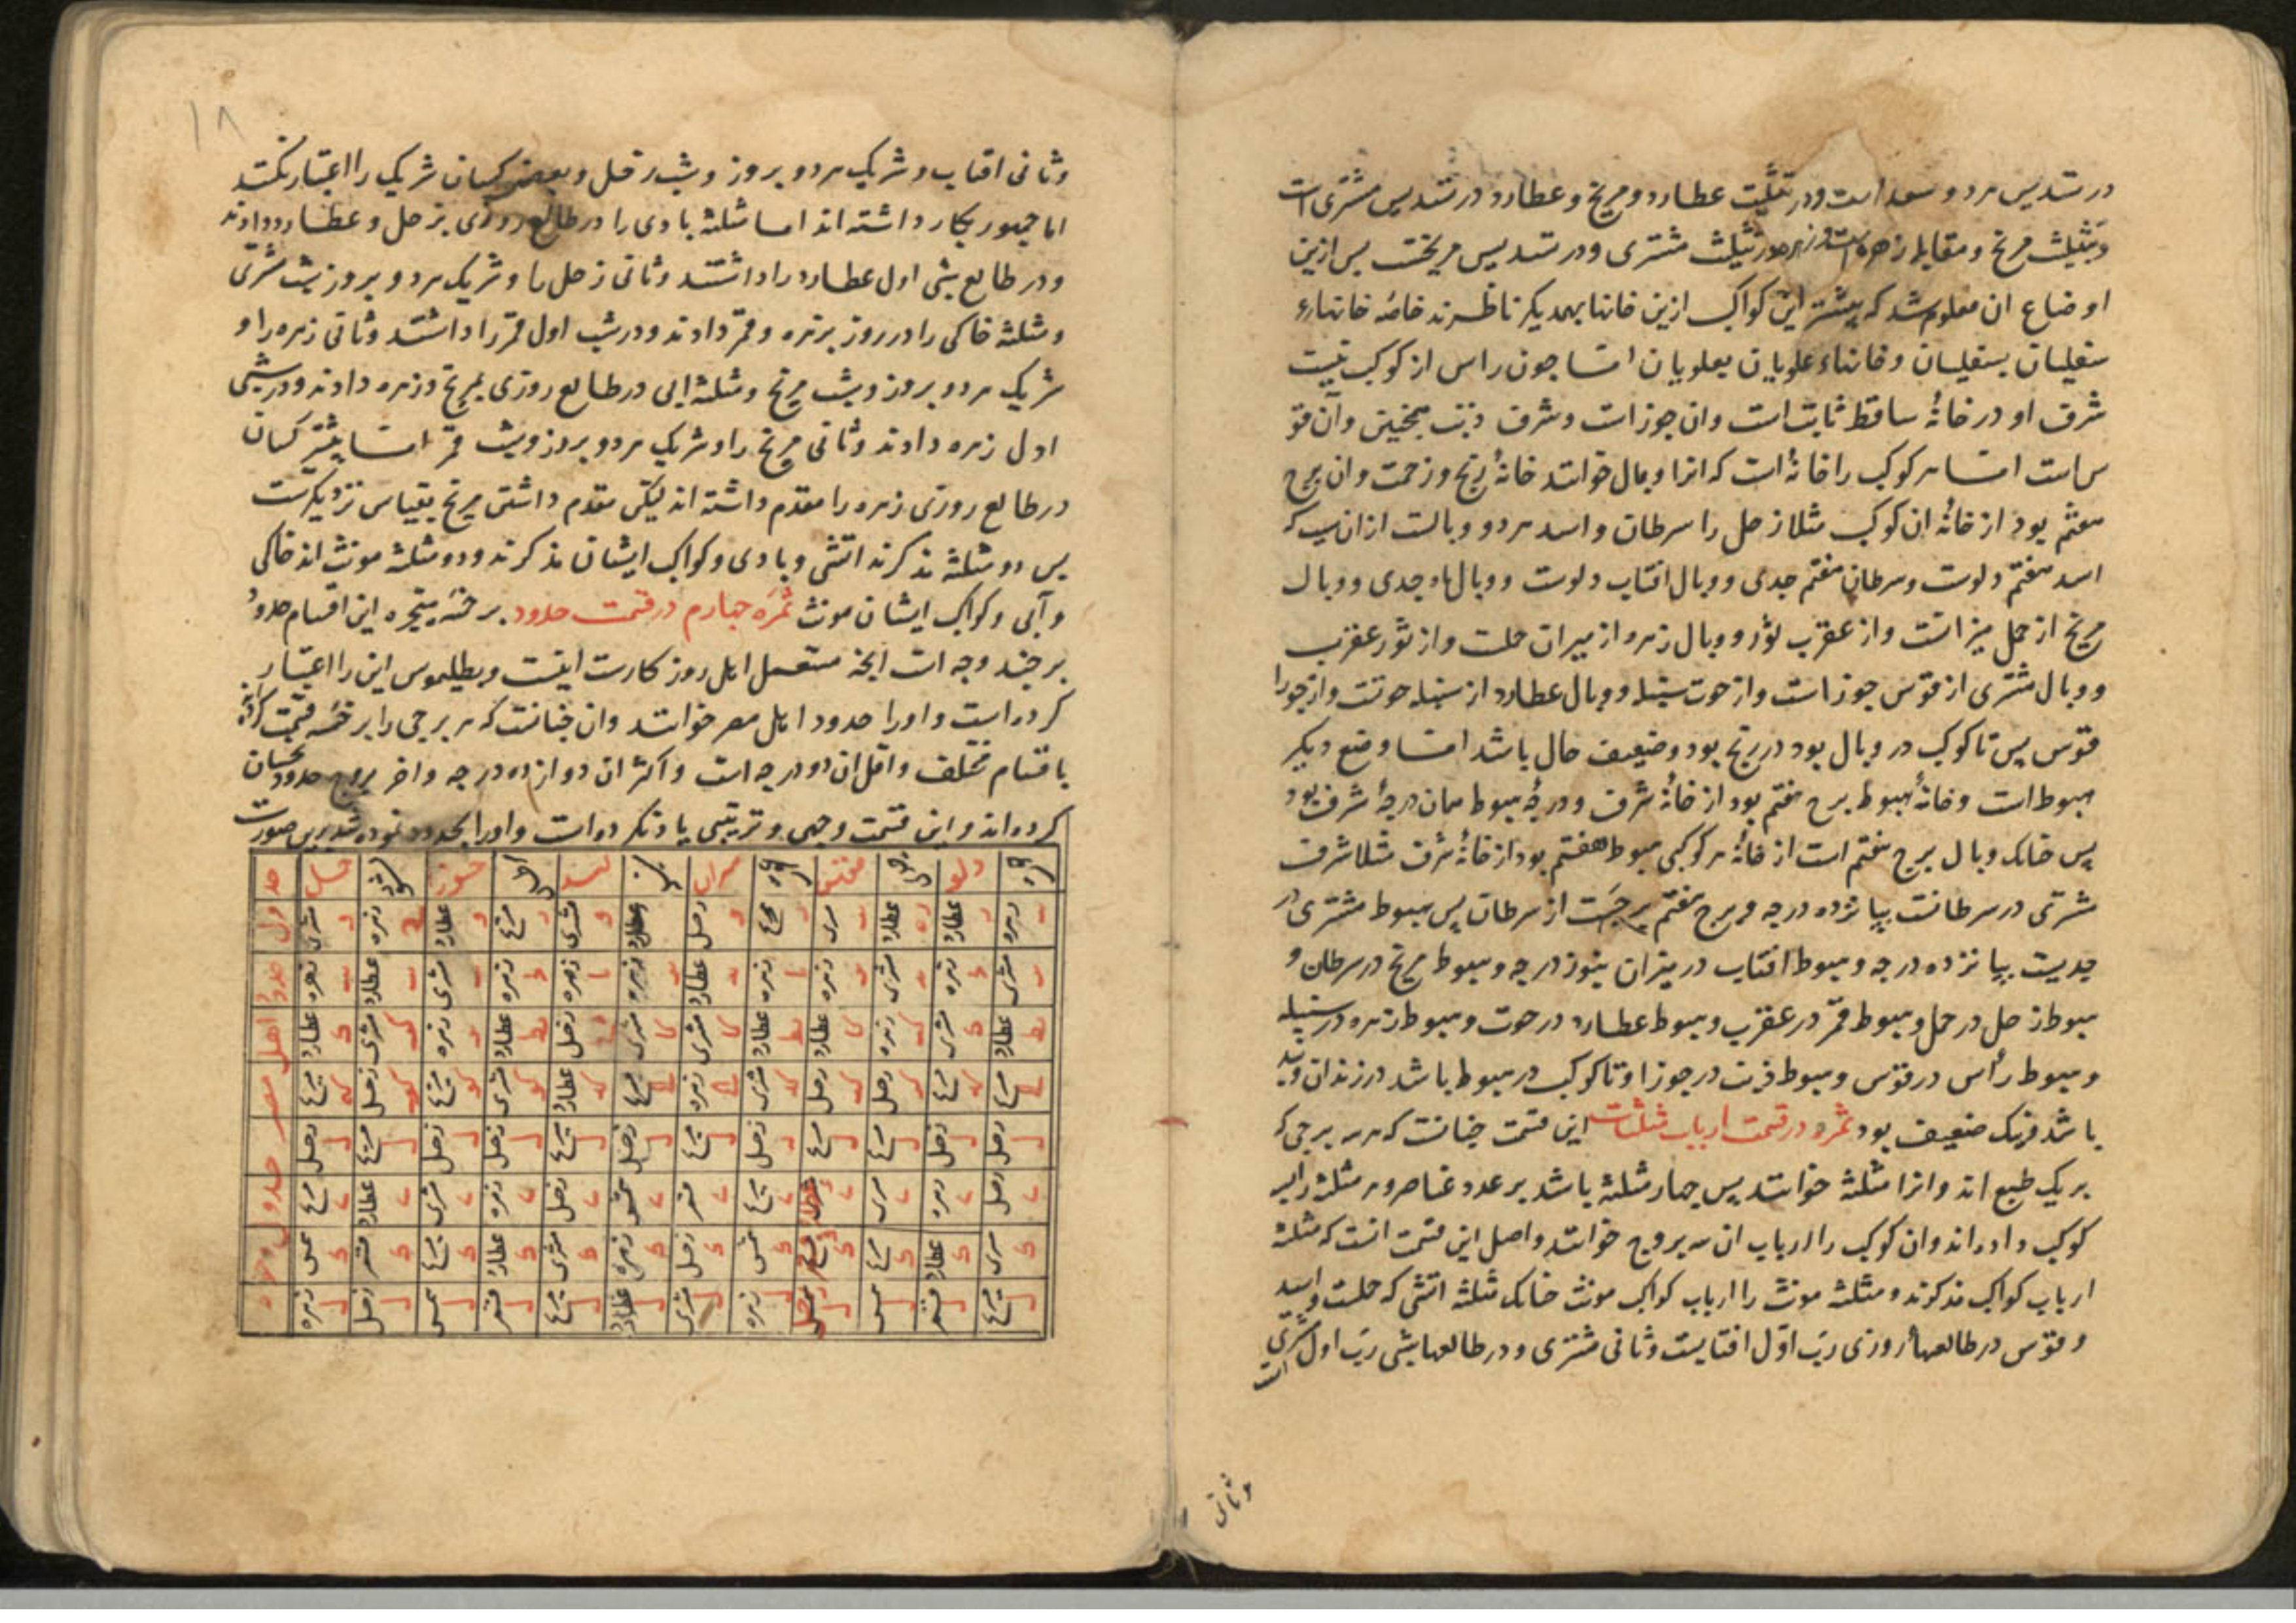 در تسدیس هر دو سعد است ودر تثلیت عطارد و مریخ و عطارد در تسدیس مشتری است
وتثلیث مریخ و مقابله زهره تثلیث مشتری ودر تسدیس مریخست بس ازین
اوضاع ان معلوم شد که بیشتر این کواکب ازین خانها بهمدیکر ناظرند خاصه خانهاء
سفلیان بسفلیان وخانهاء علویان بعلویان امـا جون راس از کوکب نیست
شرف او در خانهٔ ساقط ثابت است وان جوزاست وشرف ذنب همجنین وآن قو
س است امـا هر کوکب را خانهٔ است که انرا وبال خوانند خانهٔ رنج وزحمت وان برج
هفتم بود از خانهٔ ان کوکب مثلا زحل را سرطان واسد هر دو وبالست ازان سبب که
اسد هفتم دلوست وسرطان هفتم جدی ووبال افتاب دلوست ووبال ماه جدی ووبال
مریخ از حمل میزانست واز عقرب ثور ووبال زهره از میزان حملست واز ثور عقرب
ووبال مشتری از قوس جوزاست واز حوت سنبله ووبال عطارد از سنبله حوتست واز جوزا
قوس بس تا کوکب در وبال بود در رنج بود وضعیف حال باشد امـا وضع دیکر
هبوط است وخانهٔ هبوط برج هفتم بود از خانهٔ شرف ودرجهٔ هبوط همان درجهٔ شرف بود
پس خانک وبال برج هفتم است از خانهٔ هر کوکبی هبوط هفتم بود از خانهٔ شرف مثلا شرف
مشتری در سرطانست بپانزده درجه وبرج هفتم برجیست از سرطان پس هبوط مشتری در
جدیست بپانزده درجه وهبوط افتاب در میزان بنوزدرجه وهبوط مریخ در سرطان و
هبوط زحل در حمل وهبوط قمر در عقرب وهبوط عطارد در حوت وهبوط زهره در سنبله
وهبوط رأس در قوس وهبوط ذنب در جوزا وتا کوکب در هبوط باشد در زندان وبند
باشد ونیک ضعیف بود ثمره در قسمت ارباب مثلثات این قسمت جنانست که هر سه برجی که
بریک طبع اند وانرا مثلثه خوانند پس جهار مثلثه باشد بر عدد عناصر وهر مثلثه را سه
کوکب داده اند وان کوکب را ارباب ان سه بروج خوانند واصل این قسمت انست که مثلثه
ارباب کواکب مذکرند ومثلثه مونث را ارباب کواکب مونث خانک مثلثه اتشی که حملست واسد
وقوس در طالعهاء روزی رب اوّل افتابست وثانی مشتری ودر طالعهاء شبی رب اول مشتری
است
وثانی
۱۸
وثانی افتاب وشریک هر دو بروز وشب زحل وبعضی کسان شریک را اعتبار نکنند
اما جمهور بکار داشته اند امـا مثلثه بادی را در طالع روزی بزحل وعطارد دادند
ودر طالع شبی اول عطارد را داشتند وثانی زحل را وشریک هر دو بروز وشب مشتری
ومثلثه خاکی را در روز بزهره وقمر دادند ودر شب اول قمر را داشتند وثانی زهره را و
شریک هر دو بروز وشب مریخ ومثلثه ابی در طالع روزی بمریخ وزهره دادند ودر شبی
اول زهره دادند وثانی مریخ را وشریک هر دو بروز وشب قمر امـا بیشتر کسان
در طالع روزی زهره را مقدم داشته اند لیکن مقدم داشتن مریخ بقیاس نزدیکترست
بس دو مثلثه مذکرند اتشی وبادی وکواکب ایشان مذکرند ودو مثلثه مونث اند خاکی
وآبی وکواکب ایشان مونث ثمرَه جهارم در قسمت حدود بر خمسَه متحیره این اقسام حدود
بر جند وجه است انجه مستعمل اهل روزکارست اینست وبطلیموس این را اعتبار
کرد است واورا حدود اهل مصر خوانند وان جنانست که هر برجی را بر خمسَه قسمت کرده اند
باقسام مختلف واقل ان دو درجه است واکثر ان دوازده درجه واخر بروج حدود نحسان
کرده اند واین قسمت وجهی وترتیبی یاد نکرده است واورا بجدول نموده شد برین صورت
حوت دلو جدی قوس عقرب میزان سنبله اسد سرطان جوزا ثور حمل
زهره عطارد عطارد مشتری مریخ زحل عطارد مشتری مریخ عطارد زهره مشتری
مشتری زهره مشتری زهره زهره عطارد زهره زهره زهره مشتری عطارد زهره
عطارد مشتری زهره عطارد عطارد مشتری مشتری زحل عطارد زهره مشتری عطارد
مریخ مریخ زحل زحل مشتری زهره مریخ عطارد مشتری مریخ زحل مریخ
زحل زحل مریخ مریخ زحل مریخ زحل مریخ زحل زحل مریخ زحل
زحل زهره مشتری عطارد مریخ قمر شمس زحل زهره مشتری عطارد مریخ
مشتری عطارد مریخ قمر شمس زحل زهره مشتری عطارد مریخ قمر شمس
مریخ قمر شمس زحل زهره مشتری عطارد مریخ قمر شمس زحل زهره